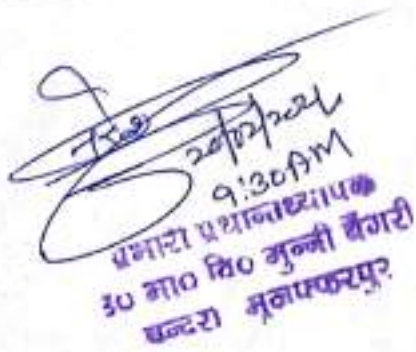 20/02/2026
9:30AM
प्रभारी प्रधानाध्यापक
उ० मा० वि० मुन्नी बैंगरी
बन्दरा मुजफ्फरपुर